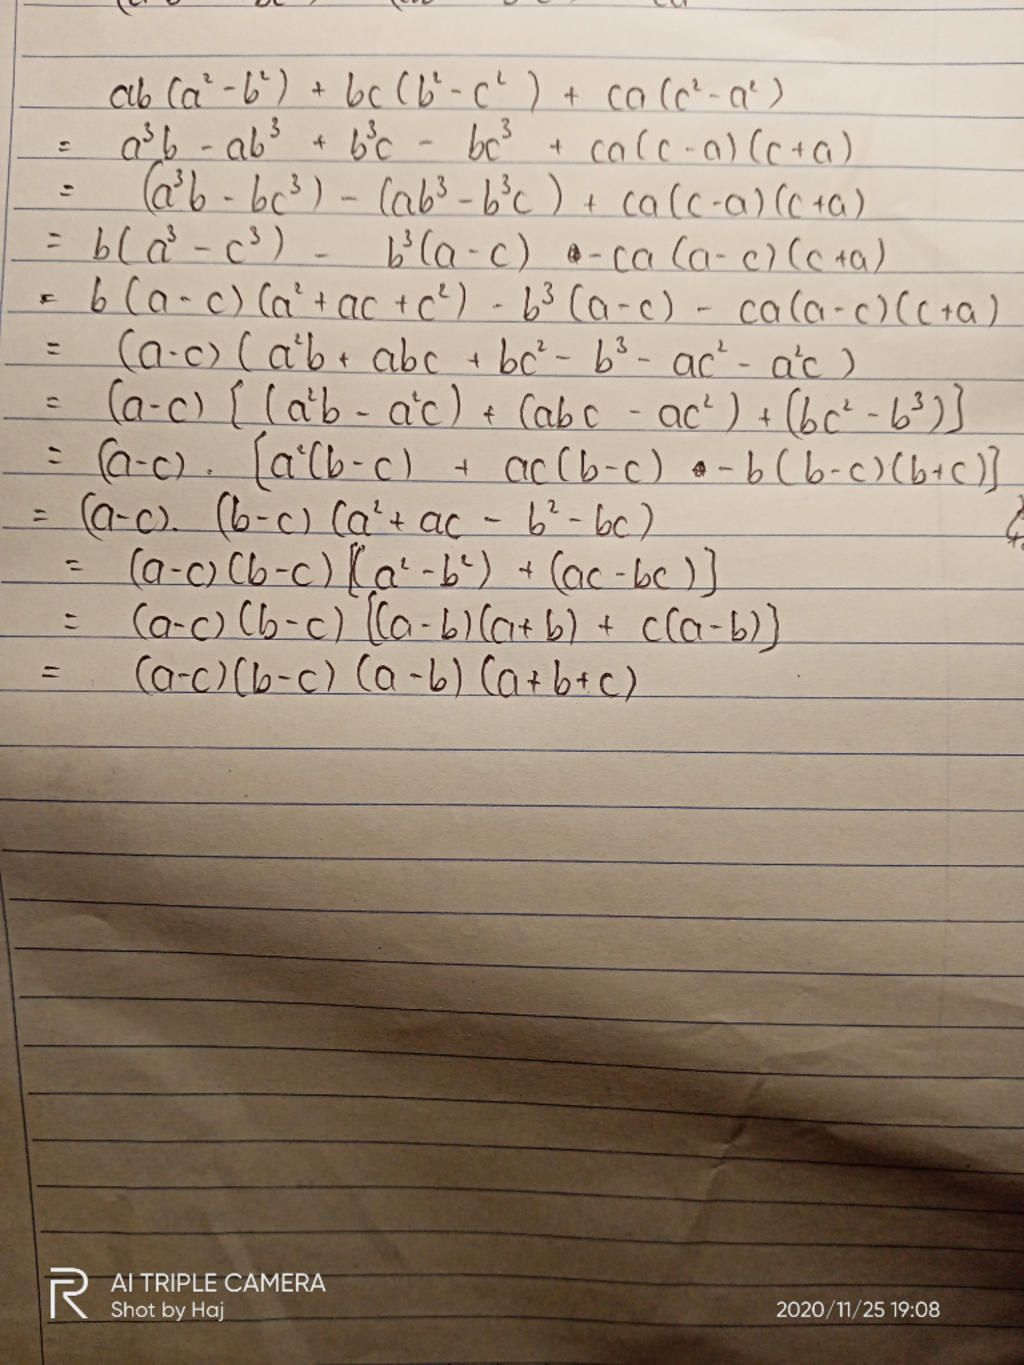 ab(a²-b²) + bc(b²-c²) + ca(c²-a²)
= a³b - ab³ + b³c - bc³ + ca(c-a)(c+a)
= (a³b - bc³) - (ab³ - b³c) + ca(c-a)(c+a)
= b(a³ - c³) - b³(a-c) - ca(a-c)(c+a)
= b(a-c)(a²+ac+c²) - b³(a-c) - ca(a-c)(c+a)
= (a-c)(a²b + abc + bc² - b³ - ac² - a²c)
= (a-c)[(a²b - a²c) + (abc - ac²) + (bc² - b³)]
= (a-c).[a²(b-c) + ac(b-c) - b(b-c)(b+c)]
= (a-c).(b-c)(a²+ac - b² - bc)
= (a-c)(b-c)[(a²-b²) + (ac-bc)]
= (a-c)(b-c)[(a-b)(a+b) + c(a-b)]
= (a-c)(b-c)(a-b)(a+b+c)
AI TRIPLE CAMERA
Shot by Haj
2020/11/25 19:08